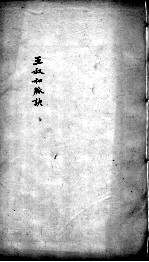 王叔和脉訣